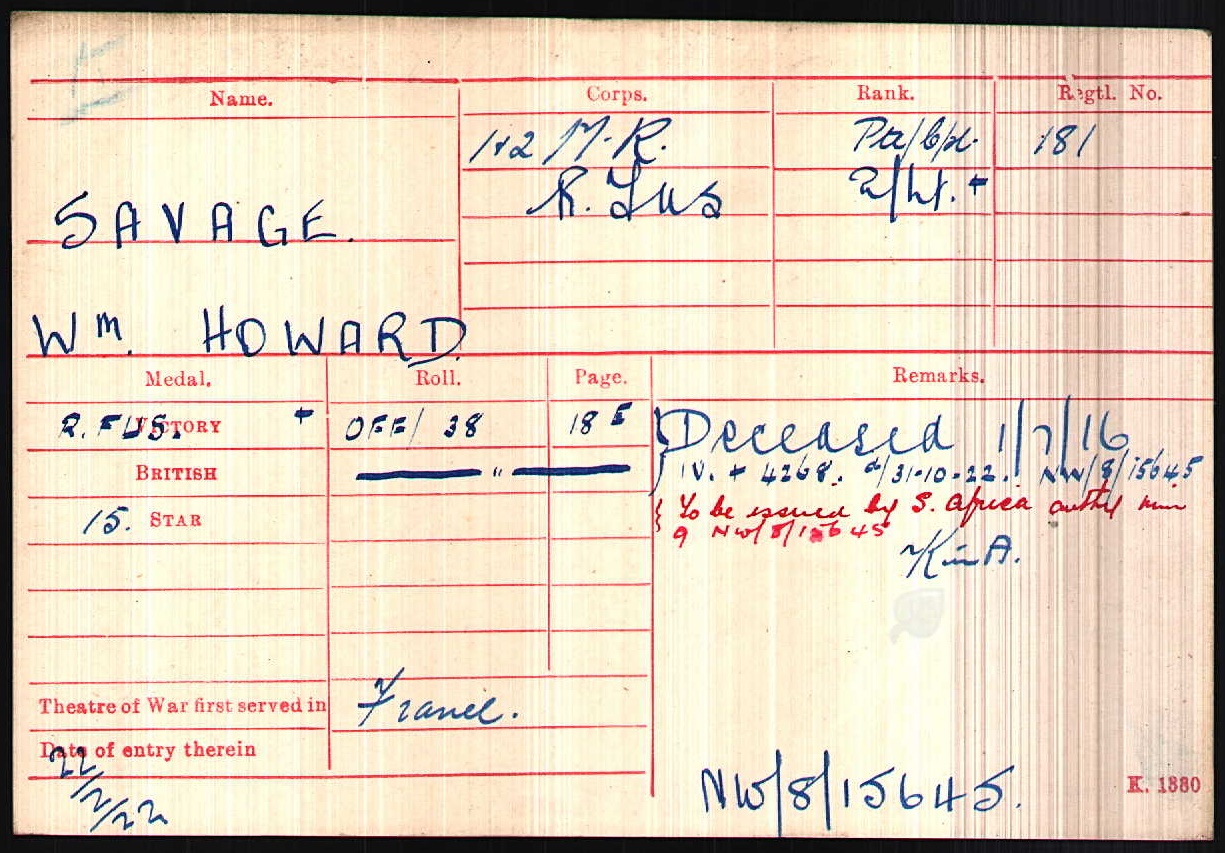 Name. Corps. Rank. Regtl. No.
1+2 M.R. Pte/Cpl. 181
R. Fus 2/Lt. +
SAVAGE.
Wm. HOWARD.
Medal. Roll. Page. Remarks.
R. FUS. VICTORY + OFF/ 38 18 E Deceased 1/7/16
BRITISH " IV. + 4268. d/31-10-22. NW/8/15645
15. STAR To be issued by S. Africa
9 NW/8/15645
K in A.
Theatre of War first served in France.
Date of entry therein
22/2/22
NW/8/15645.
K. 1380